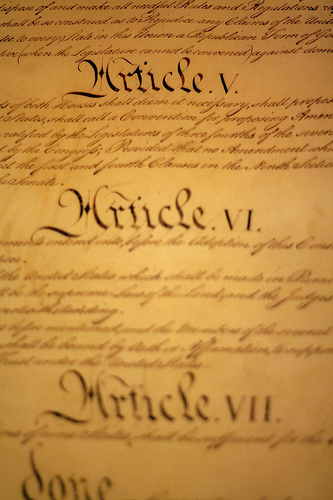 dispose of and make all needful Rules and Regulations
shall be so construed as to Prejudice any Claims of the United
to every State in this Union a Republican Form of
(when the Legislature cannot be convened) against
Article. V.
of both Houses shall deem it necessary, shall propose
States, shall call a Convention for proposing Amen
ratified by the Legislatures of three fourths of the several
by the Congress; Provided that no Amendment which
the first and fourth Clauses in the Ninth Section
Senate.
Article. VI.
entered into, before the Adoption of this Const
the United States which shall be made in Pursu
be the supreme Law of the Land; and the Judges
notwithstanding.
before mentioned, and the Members of the several
shall be bound by Oath or Affirmation, to support
Trust under the United States.
Article. VII.
States, shall be sufficient for the
done